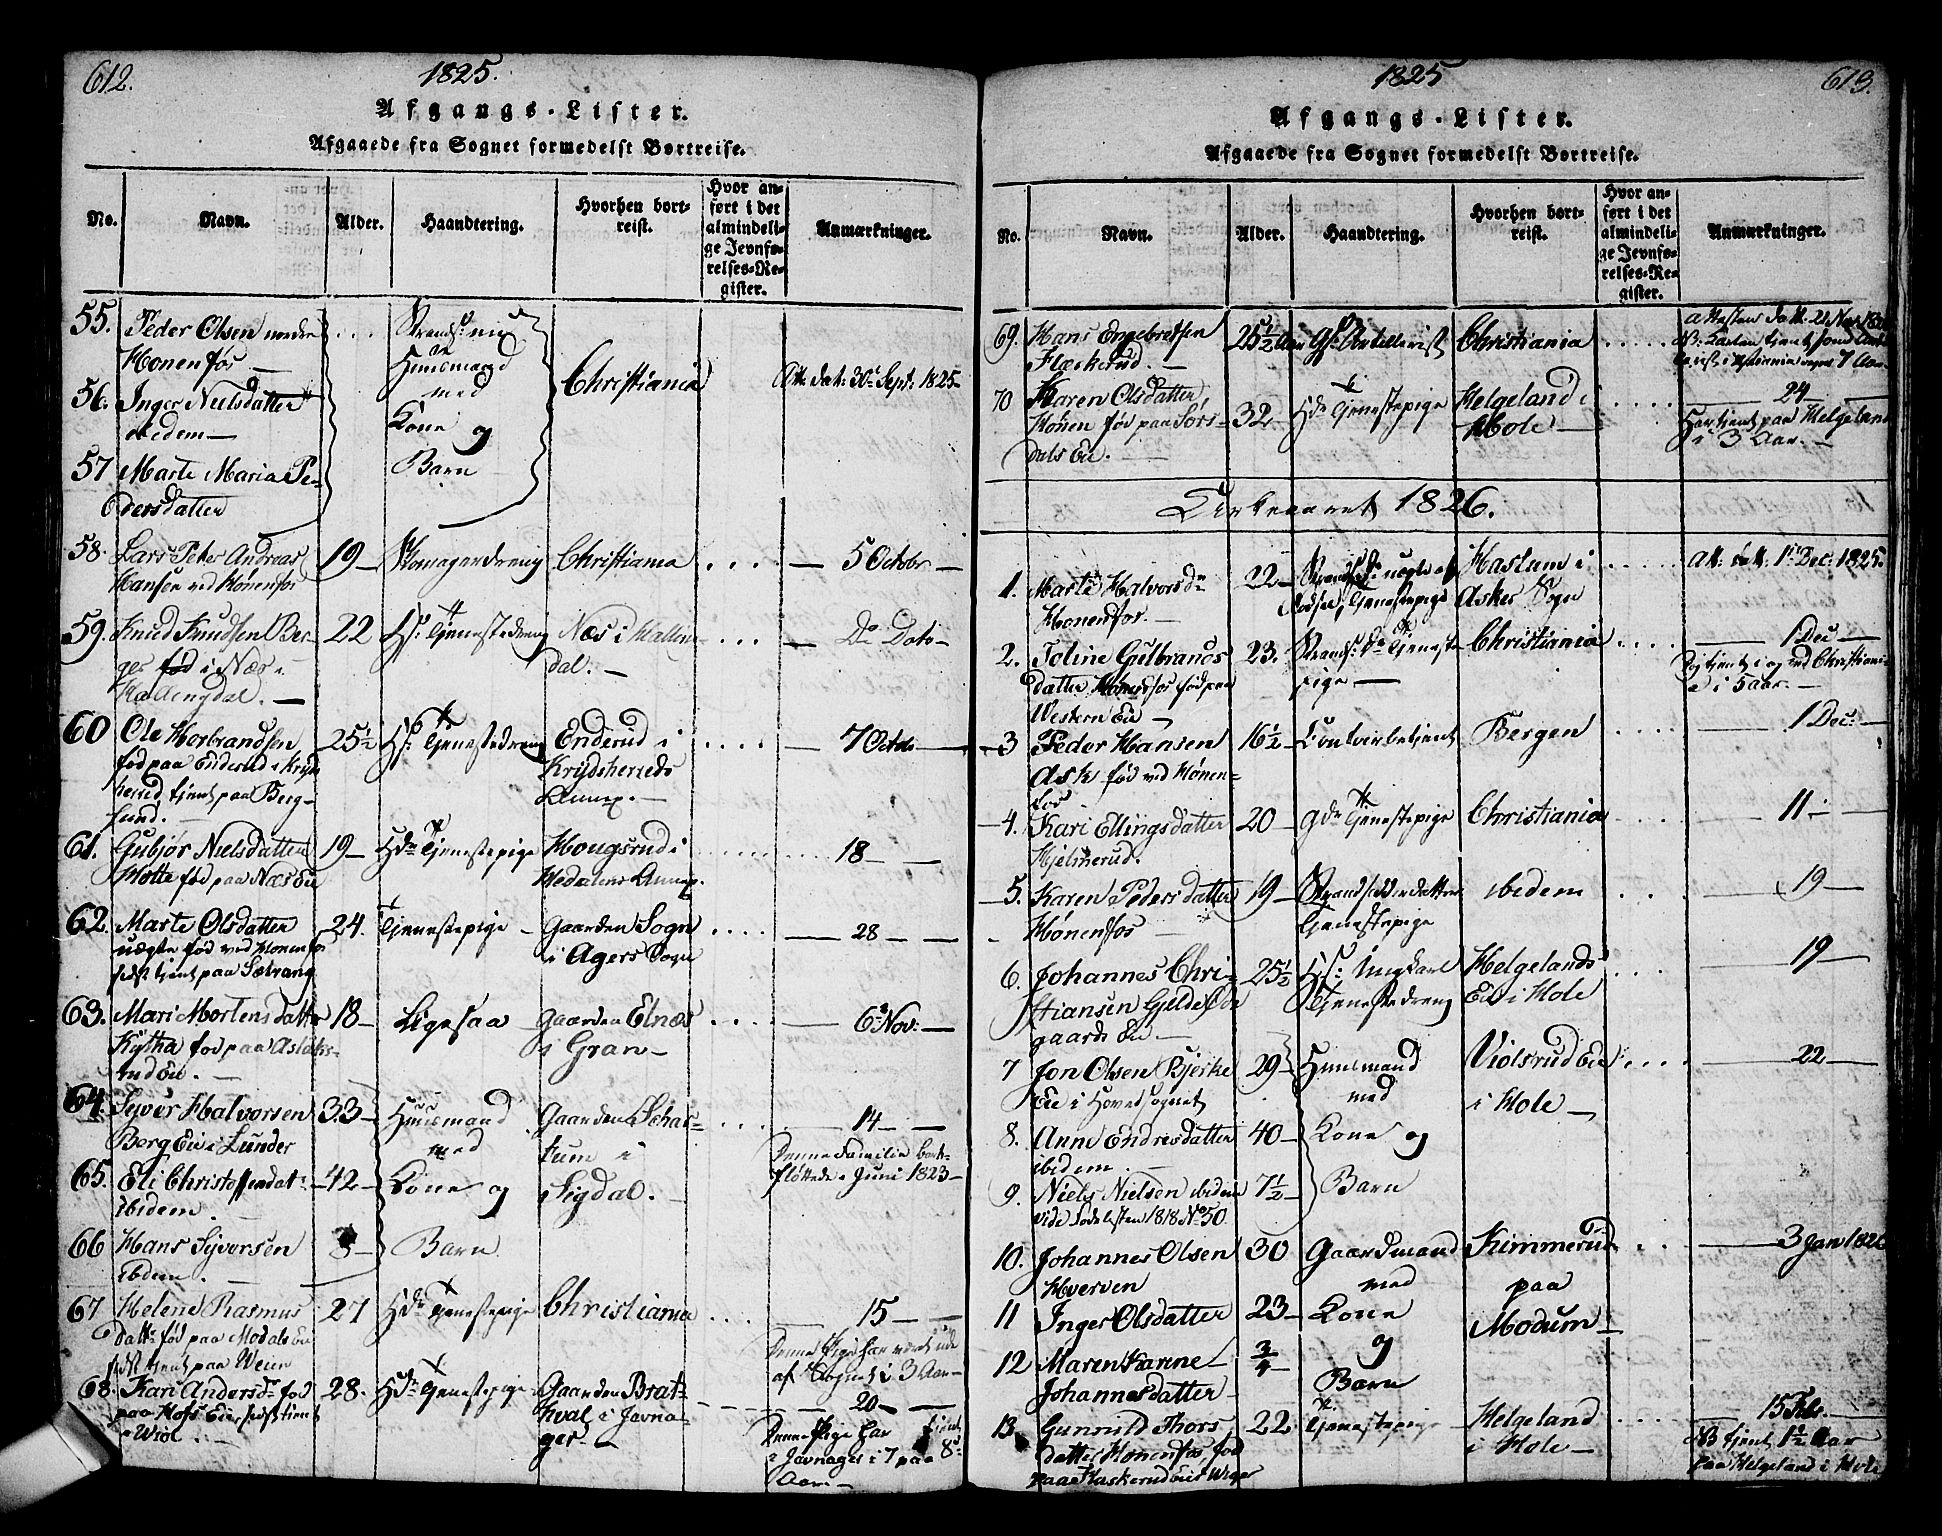 612.
1825.
Afgangs-Lister.
Afgaaede fra Sognet formedelst Bortreise.
No.
Navn.
Alder.
Haandtering.
Hvorhen bort-
reist.
Hvor an-
ført i det
almindeli-
ge Jevnfø-
relses-Re-
gister.
Anmærkninger.
55.
Peder Olsen nordre
Honenfos
Huusmand
med
Christiania
Att. dat. 30te Sept. 1825
56.
Inger Nielsdatter
ibidem
Kone og
57
Marte Maria Pe-
dersdatter
Barn
58.
Lars Peter Andreas
Hansen ved Hønenfos
19
Skomagerdreng
Christiania
5 Octobr
59.
Knud Knudsen Ber-
ges fød i Næs i
Hallingdal.
22
Hs. Tjenestedreng
Næs i Hallin-
dal.
Do Dato
60
Ole Horbrandsen
fød paa Enderud i Kryds-
herred, tjent paa Berg-
lund.
25½
Hs. Tjenestedreng
Enderud i
Krydsherreds
Annex.
7 Octob
61.
Gubjør Nielsdatter
Hotte fød paa Næs Eie
19
Hdr Tjenestepige
Hougsrud i
Hedalens Annex.
18
62.
Marte Olsdatter
uægte fød ved Honenfos
sidst tjent paa Sætrang
24.
Tjenestepige
Gaarden Sogn
i Agers Sogn
28
63.
Mari Mortensdatter
Kytha fød paa Aslaks-
rud Eie.
18
Ligesaa
Gaarden Elnæs
i Gran
6 Nov:
64.
Syver Halvorsen
Berg Eie i Lunder
33
Huusmand
med
Gaarden Schar-
tum i
14
Denne Familie bort-
fløttede i Juni 1823
65.
Eli Christoffersdat:
ibidem.
42
Kone og
Sigdal.
66
Hans Syversen
ibdem.
Barn
67
Helene Rasmus
datt: fød paa Modals Eie
sidst tjent paa Weien
27
Hdr Tjenestepige
Christiania
15
Denne Pige har været ude
af Sognet i 3 Aar
68.
Kari Andersdr fød
paa Hofs Eie, sidst tjent
28.
Hdr Tjenestepige
Gaarden Brat-
kval i Jævna-
ger
20
Denne Pige har tjent
i Jævnager i 7 paa 8de
Aar.
1825
613.
Afgangs-Lister.
Afgaaede fra Sognet formedelst Bortreise.
No.
Navn.
Alder.
Haandtering.
Hvorhen bort-
reist.
Hvor an-
ført i det
almindeli-
ge Jevnfø-
relses-Re-
gister.
Anmærkninger.
69.
Hans Engebretsen
Flaskerud.
25½ Aar
Gs. Artillerist
Christiania
Attesten datt. 21 Nov. 1825
7 Aar
70
Karen Olsdatter,
Hønen fød paa Sørs-
dals Eie.
32
Hdr Tjenestepige
Helgeland i
Hole
24
Har tjent paa Helgeland
i 3 Aar.
Kirkeaaret 1826.
1.
Marte Halvorsdr
Honenfos.
22
Tjenestepige
Haslum i
Asker Sogn
Att: datt. 1te Dec: 1825.
2.
Toline Gulbrands
datter Hønenfos fød paa
Western Eie
23.
Strands: Dr Tjeneste
pige
Christiania
1 Dec
tjent i og ved Christiani-
a i 5 aar.
3
Peder Hansen
Ask fød ved Hønen-
fos
16½
Contoirbetjent
Bergen
1 Dec:
4.
Kari Ellingsdatter
Hjelmerud.
20
Gdr Tjenestepige
Christiania
11
5.
Karen Pedersdatter
Hønenfos
19
Strandsidderdatter
Tjenestepige
ibidem
19
6.
Johannes Chri-
stiansen Gjelde Øde
gaards Eie
25½
Hs: Ungkarl
Tjenestedreng
Helgelands
Eie i Hole
19
7
Jon Olsen Bjerke
Eie i Hovedsognet
29
Huusmand
med
Violsrud Eie
i Hole
22
8.
Anne Endresdatter
ibidem.
40
Kone og
9.
Niels Nielsen ibidem
vide Fødelisten 1818 No 50
7½
Barn
10.
Johannes Olsen
Hverven
30
Gaardmand
med
Kimmerud
paa
Modum
3 Jan 1826
11
Inger Olsdatter
23
Kone
og
12
Maren Karine
Johannesdatter
¾
Barn
13.
Gunnild Thors
datter Honenfos fød
paa Flaskerud Eie Weger
22
Tjenestepige
Helgeland
i Hole
15 Feb.
NB tjent 1½ Aar
paa Helgeland i Hole